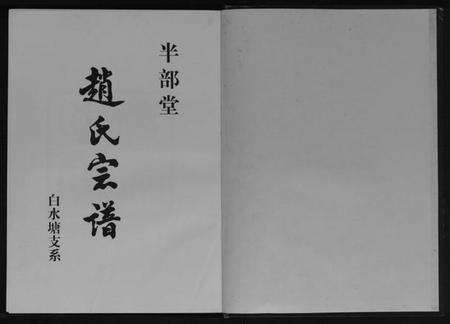 半部堂
趙氏宗譜
白水塘支系